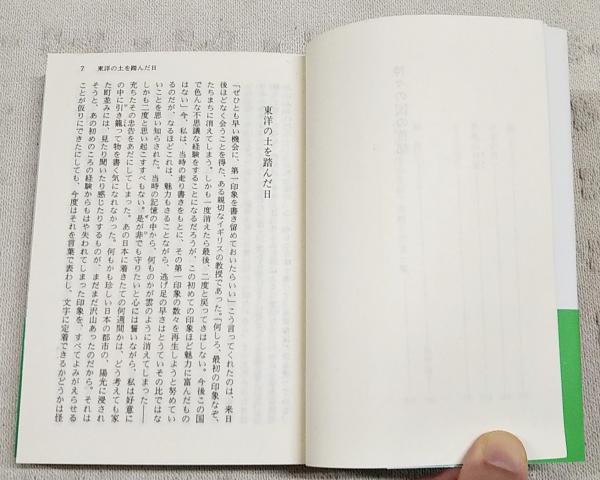 7 東洋の土を踏んだ日
東洋の土を踏んだ日
「ぜひとも早い機会に、第一印象を書き留めておいたらいい」こう言ってくれたのは、来日
後ほどなく会うことを得た、ある親切なイギリスの教授であった。「何しろ、最初の印象なぞ、
たちまちに消えてしまう、しかも一度消えたら最後、二度と戻ってきはしない。今後この国
で色んな不思議な経験をすることになるだろうが、この初めての印象ほど魅力に富んだもの
はない」今、私は、当時の走り書きをもとに、その第一印象の数々を再生しようと努めてい
るのだが、なるほどこれは、魅力もさることながら、逃げ足の早さはとうていその比ではな
いことを思い知らされた。当時の記憶の中から、何ものかが雲のように消えてしまった――
しかも二度と思い起こすすべもない。是が非でも守りたいと心には誓いながら、私は好意に
充ちたその忠告をあだにしてしまった。あの日本に着きたての何週間かは、どう考えても家
の中に引き籠って物を書く気になれなかった。何もかも珍しい日本の都市の、陽光に浸され
た町並みには、見たり聞いたり感じたりするものが、まだまだ沢山あったのだから。それは
そうと、あの初めのころの経験からもはや失われてしまった印象を、すべてよみがえらせる
ことが仮りにできたにしても、今度はそれを言葉で表わし、文字に定着できるかどうかは怪